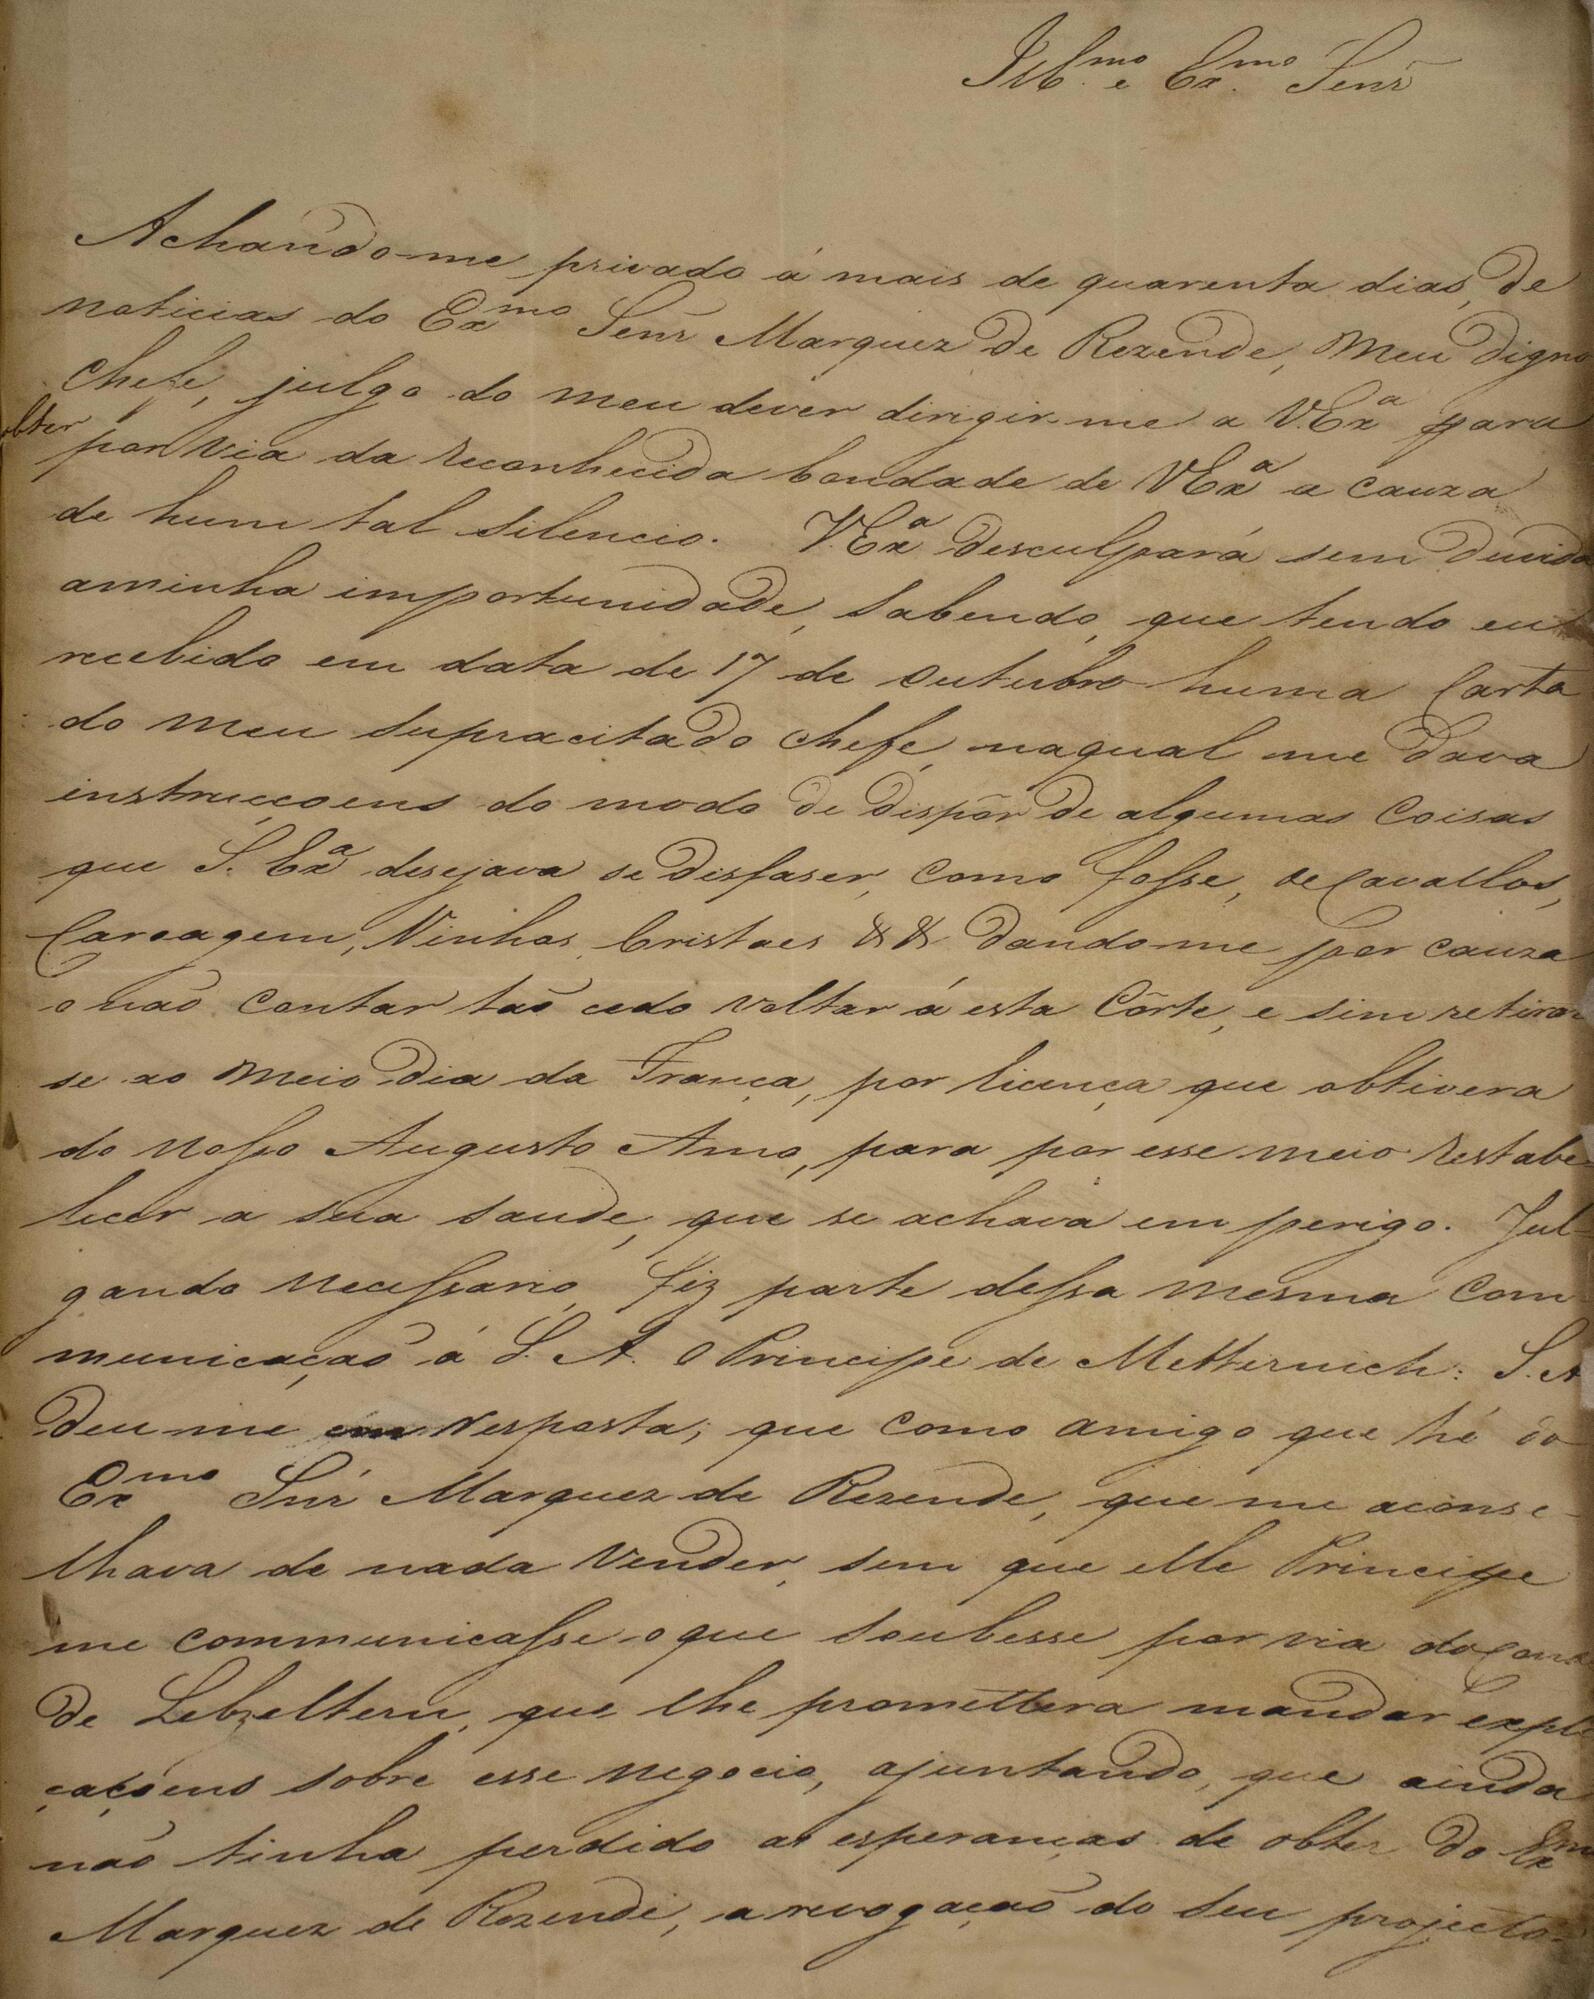 Illmo. e Exmo. Senr
Achando-me privado á mais de quarenta dias, de
noticias do Exmo Senr Marquez de Rezende, Meu digno
Chefe, julgo do meu dever dirigir-me a V.Exa para
obter
por via da reconhecida bondade de V Exa a cauza
de hum tal silencio. V.Exa desculpará sem duvida
aminha importunidade, sabendo, que tendo eu
recebido em data de 17 de outubro huma Carta
do meu supracitado Chefe, naqual me dava
instrucçoens do modo de dispôr de algumas Coisas
que S. Exa desejava se disfaser, como fosse, de Cavallos,
Caroagem, Vinhos, Cristaes & & dandome por cauza
o não contar tão cedo voltar á esta Côrte, e sim retirar
se ao Meio Dia da França, por licença que obtivera
do Nosso Augusto Amo, para por esse meio restabe
lecer a sua saude, que se achava em perigo. Jul-
gando necessario, fiz parte dessa mesma Com
municação á S. A. O Principe de Metternich: S. A
deu me em resposta; que como amigo que hé do
Exmo Snr Marquez de Rezende, que me aconse-
lhava de nada vender, sem que elle Principe
me communicasse o que soubesse por via do Conde
de Lebzeltern, que lhe promettera mandar expli
caçoens sobre esse negocio, ajuntando, que ainda
não tinha perdido as esperanças de obter do Exmo
Marquez de Rezende, a revogação do seu projecto.